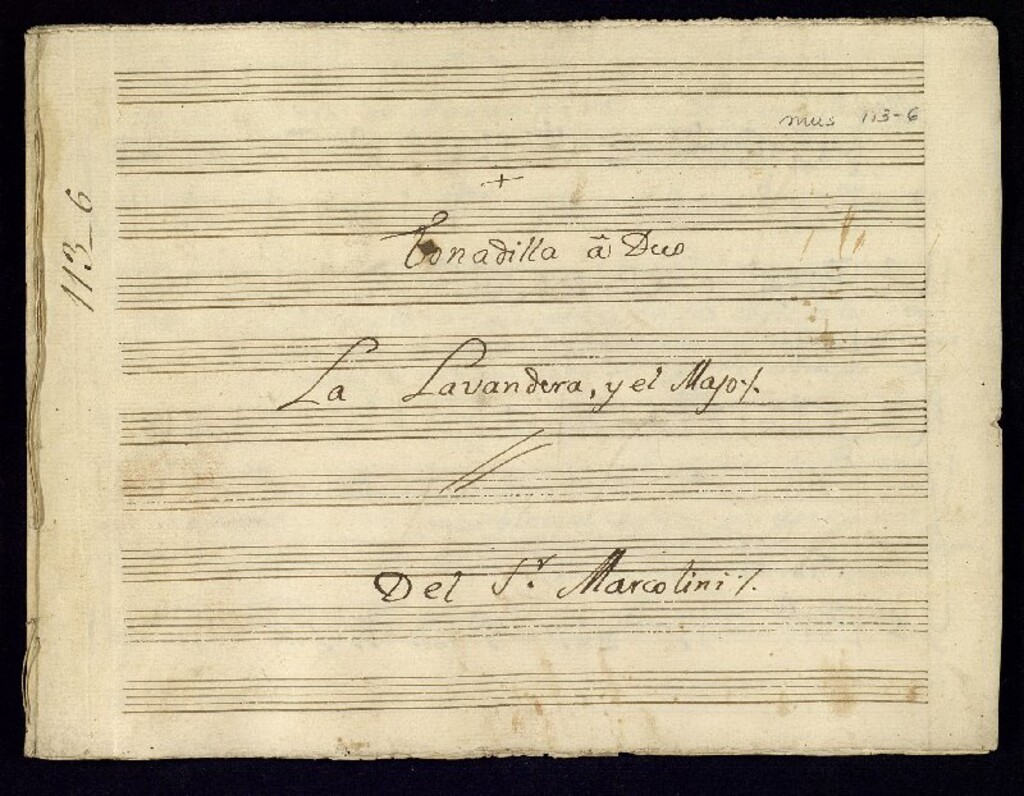 mus 113-6
113_6
+
Tonadilla â Duo
La Lavandera, y el Majo·/.
Del S.r Marcolini·/.